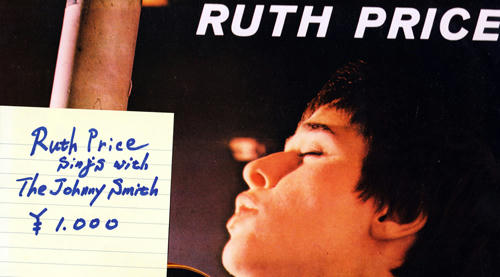 RUTH PRICE
Ruth Price
Sings with
The Johnny Smith
¥1.000